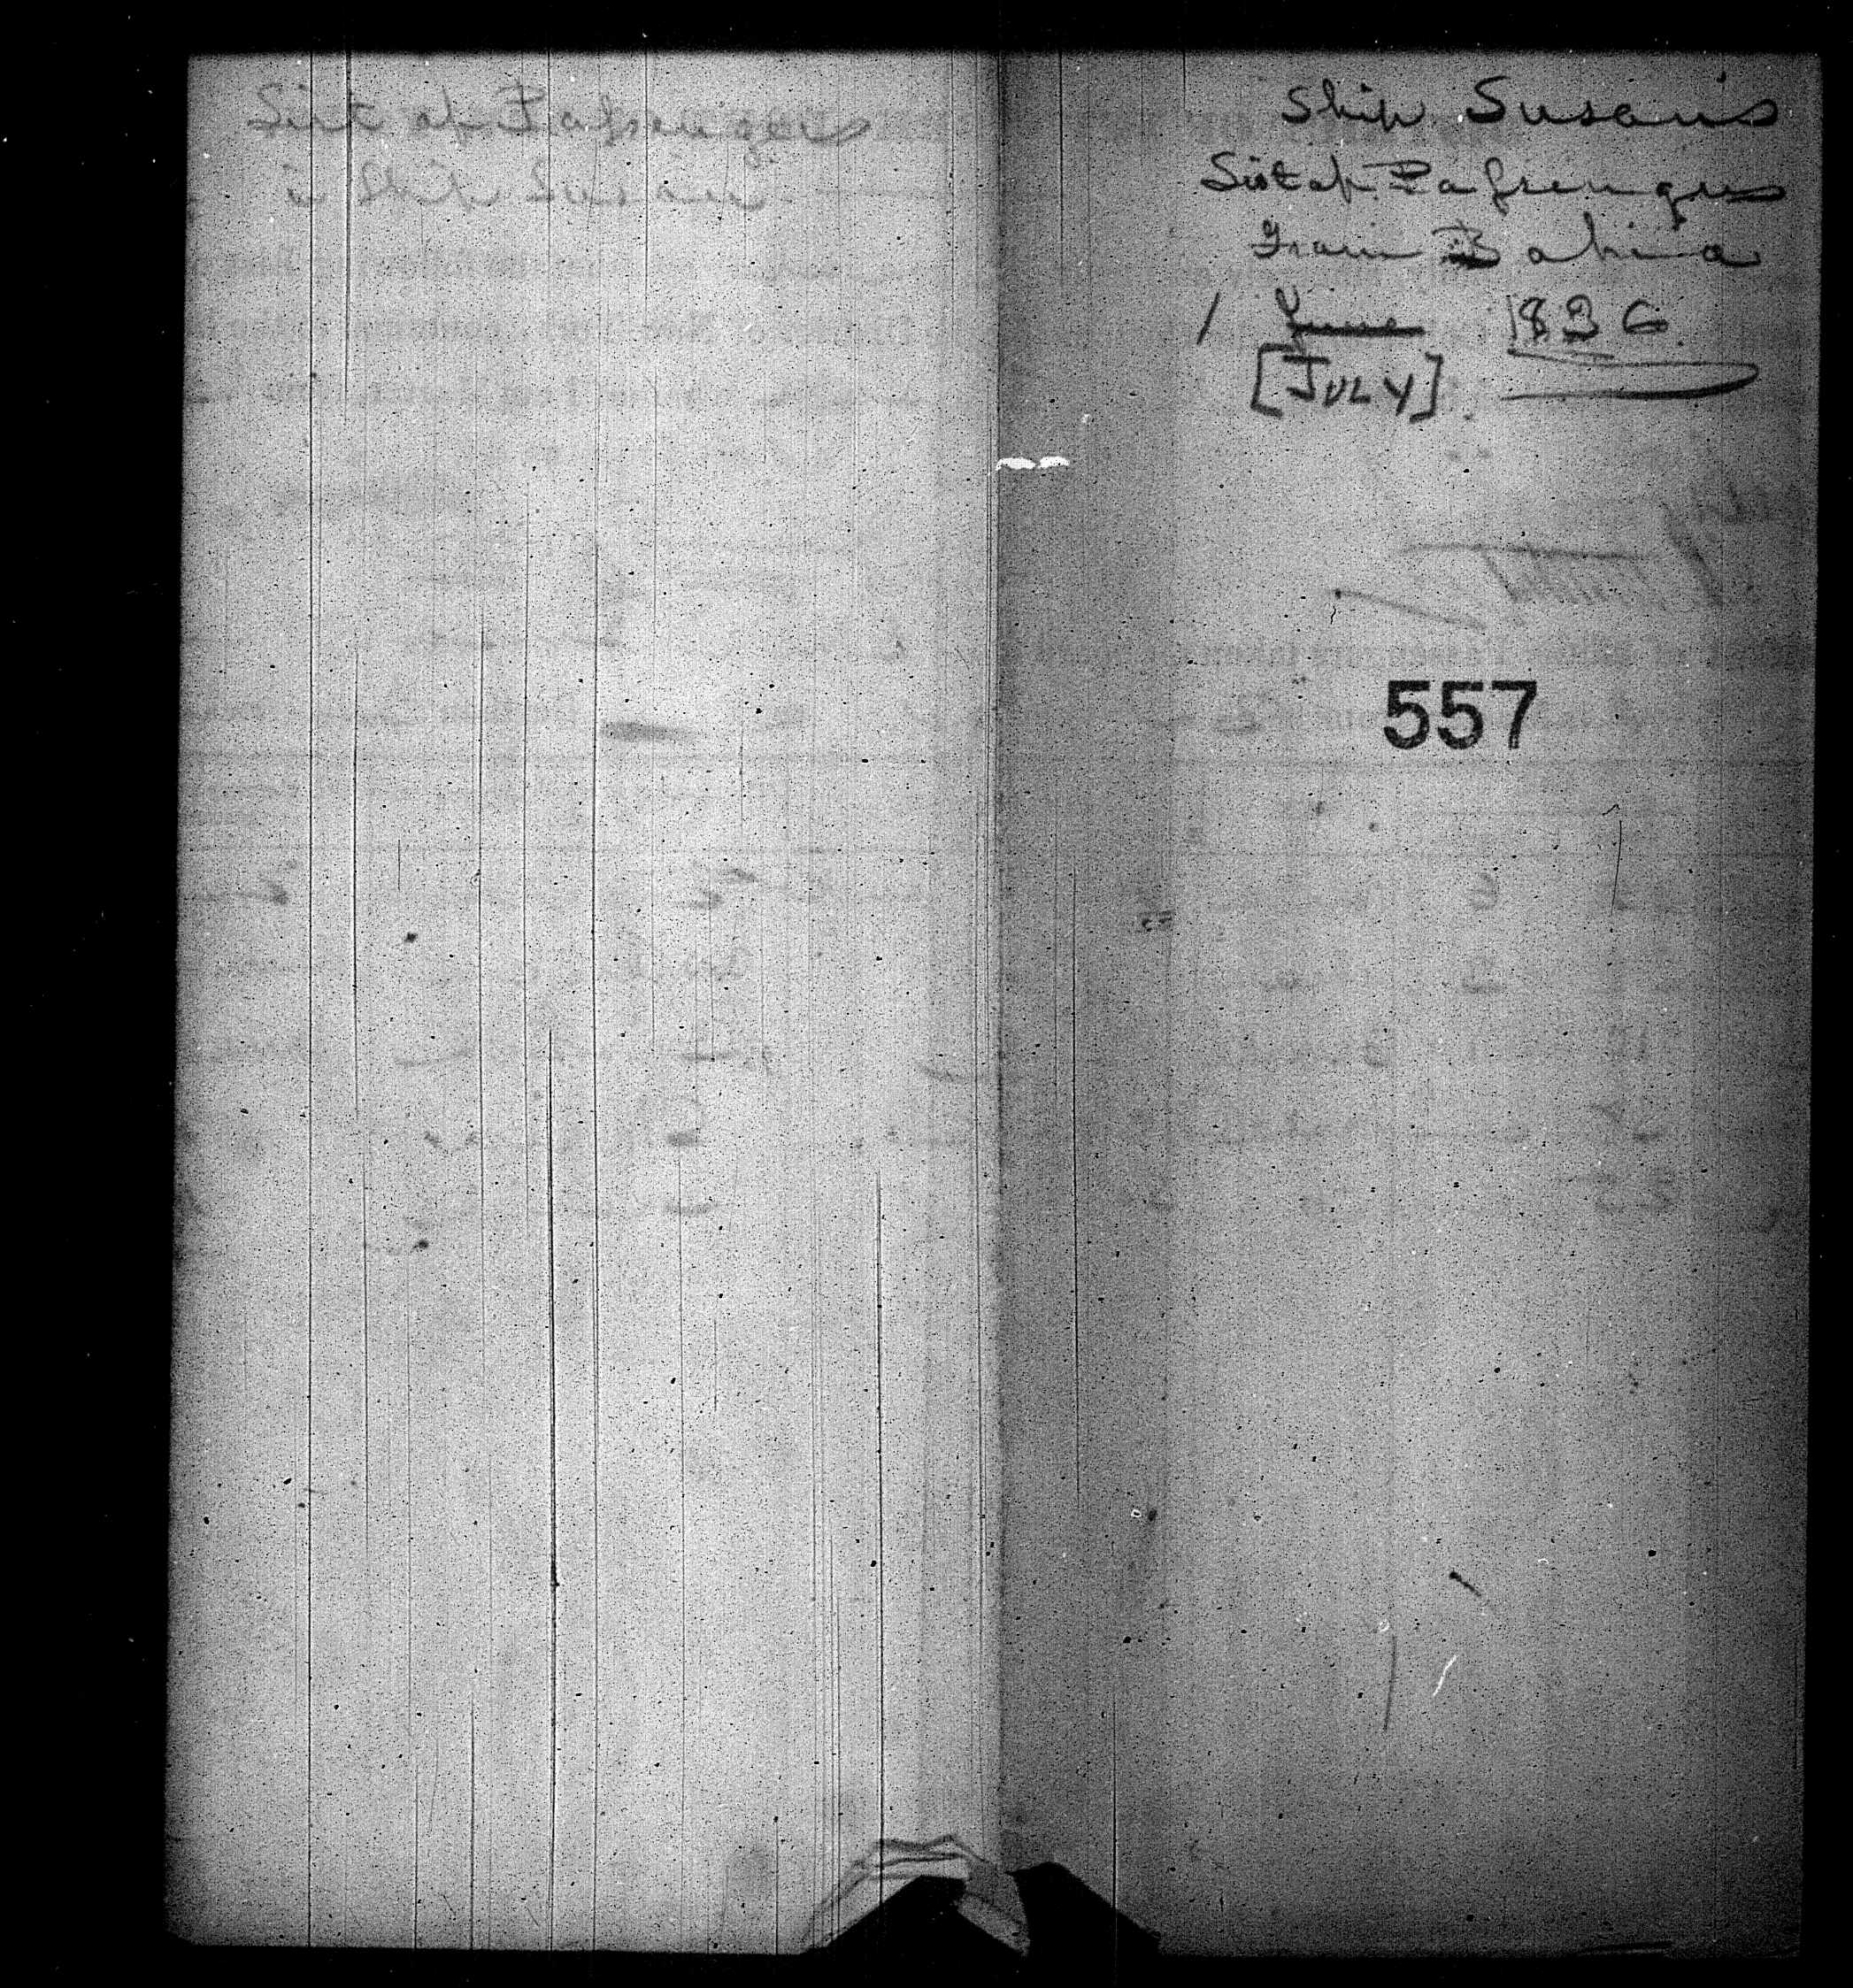 List of Passengers
in Ship Susan
Ship Susan's
List of Passengers
From Bahia
1 June 1836
[JULY]
557